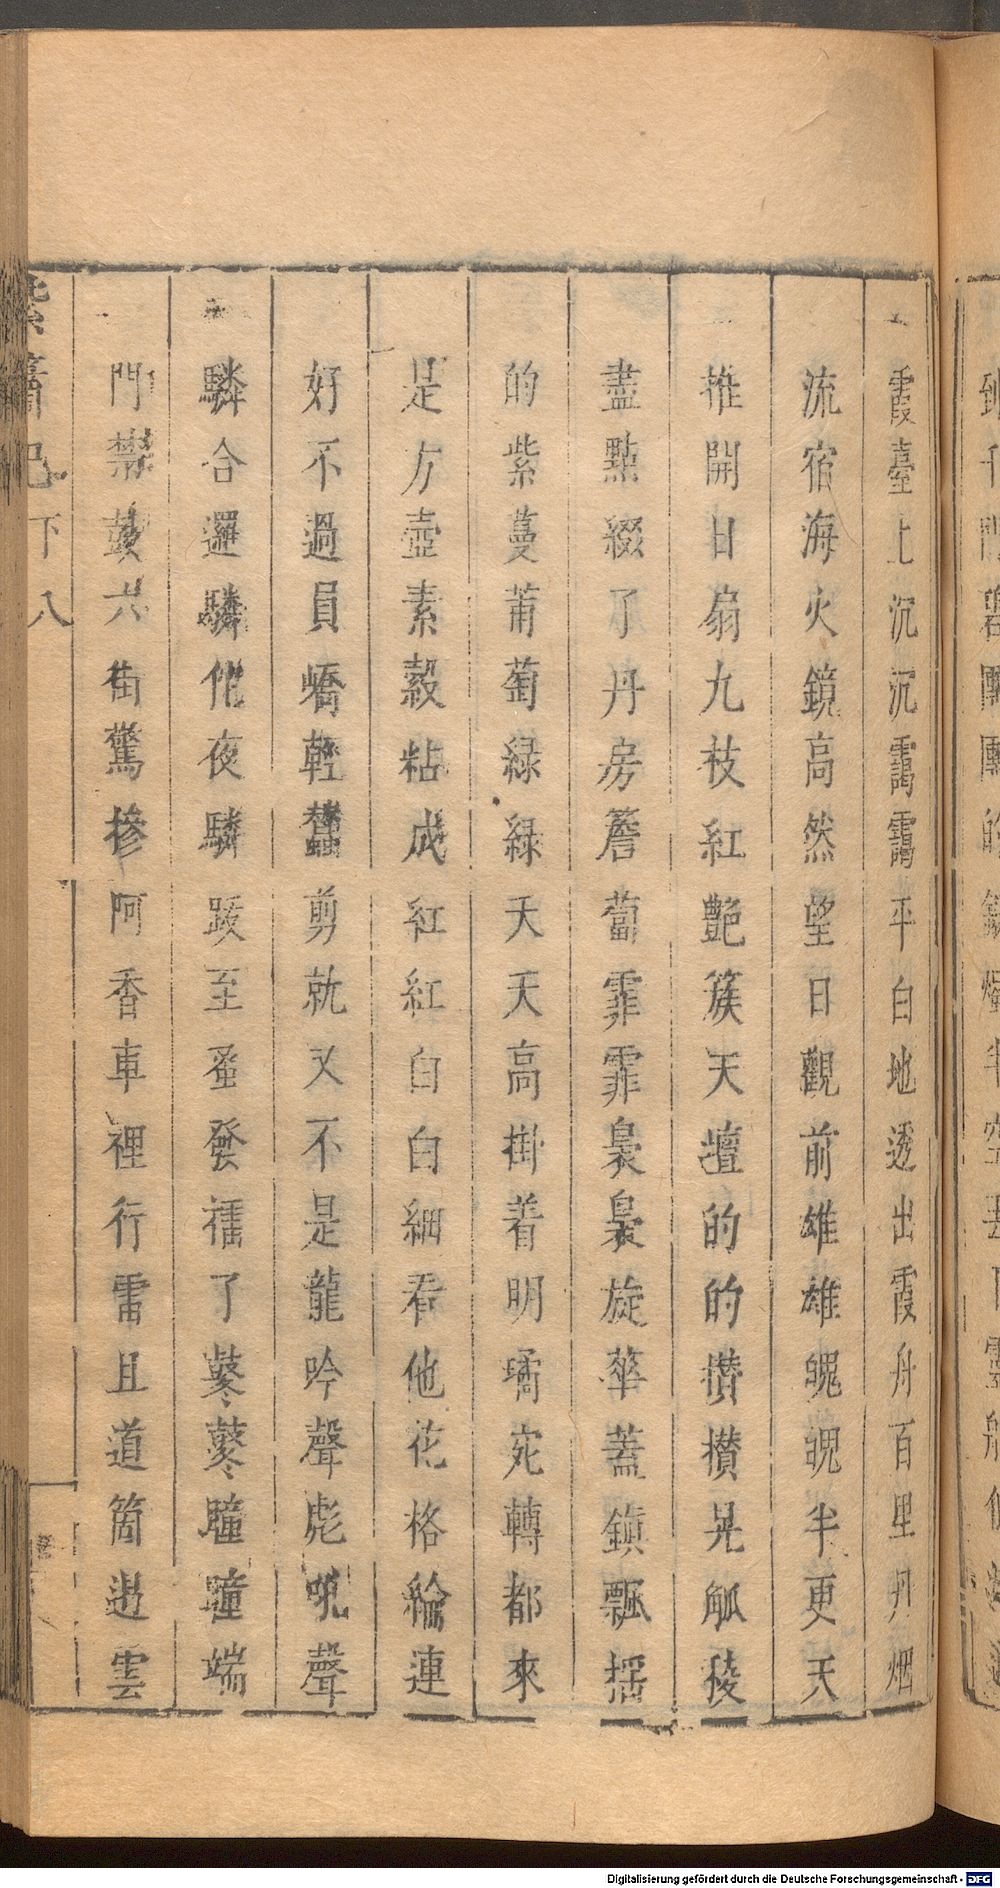 霞臺上沉沉靄靄平白地透出霞舟百里丹烟
流宿海火鏡高然望日觀前雄雄魄魄半更天
推開日扇九枝紅艷簇天壇的的攢攢晃觚稜
盡點綴了丹房簷蔔霏霏裊裊旋華蓋鎮飄搖
的紫蔓莆萄綠綠天天高掛着明霱宛轉都來
是方壺素縠粘成紅紅白白細看他花格綸連
好不過員嶠輕蠶剪就又不是龍吟聲彪吼聲
驎合邏驎佗夜驎跋至蚤發㩦了鼕鼕疃疃端
門禁鼓六街驚摻阿香車裡行雷且道箇遏雲
紫簫記 下 八
Digitalisierung gefördert durch die Deutsche Forschungsgemeinschaft - DFG